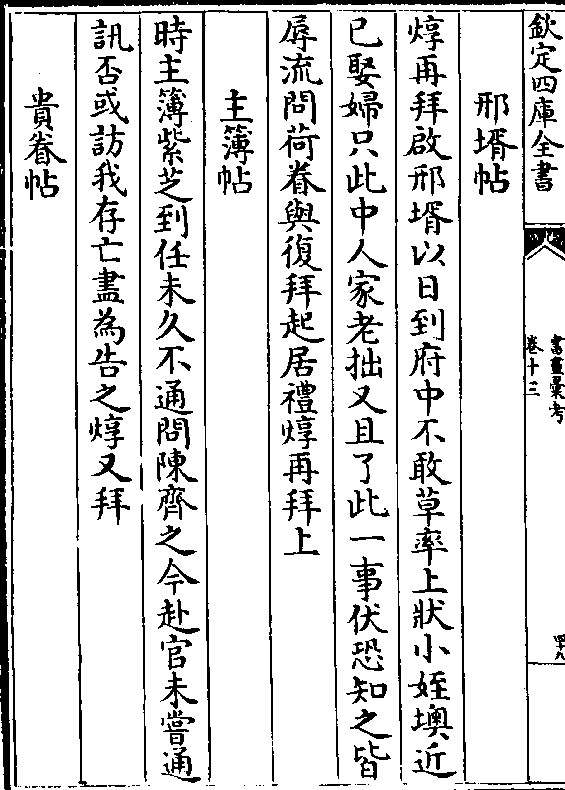 欽定四庫全書
書畫彙考
卷十三
四十八
邢壻帖
焞再拜啟邢壻以日到府中不敢草率上狀小姪墺近
已娶婦只此中人家老拙又且了此一事伏恐知之皆
辱流問荷眷與復拜起居禮焞再拜上
主簿帖
時主簿紫芝到任未久不通問陳齊之今赴官未嘗通
訊否或訪我存亡盡為告之焞又拜
貴眷帖